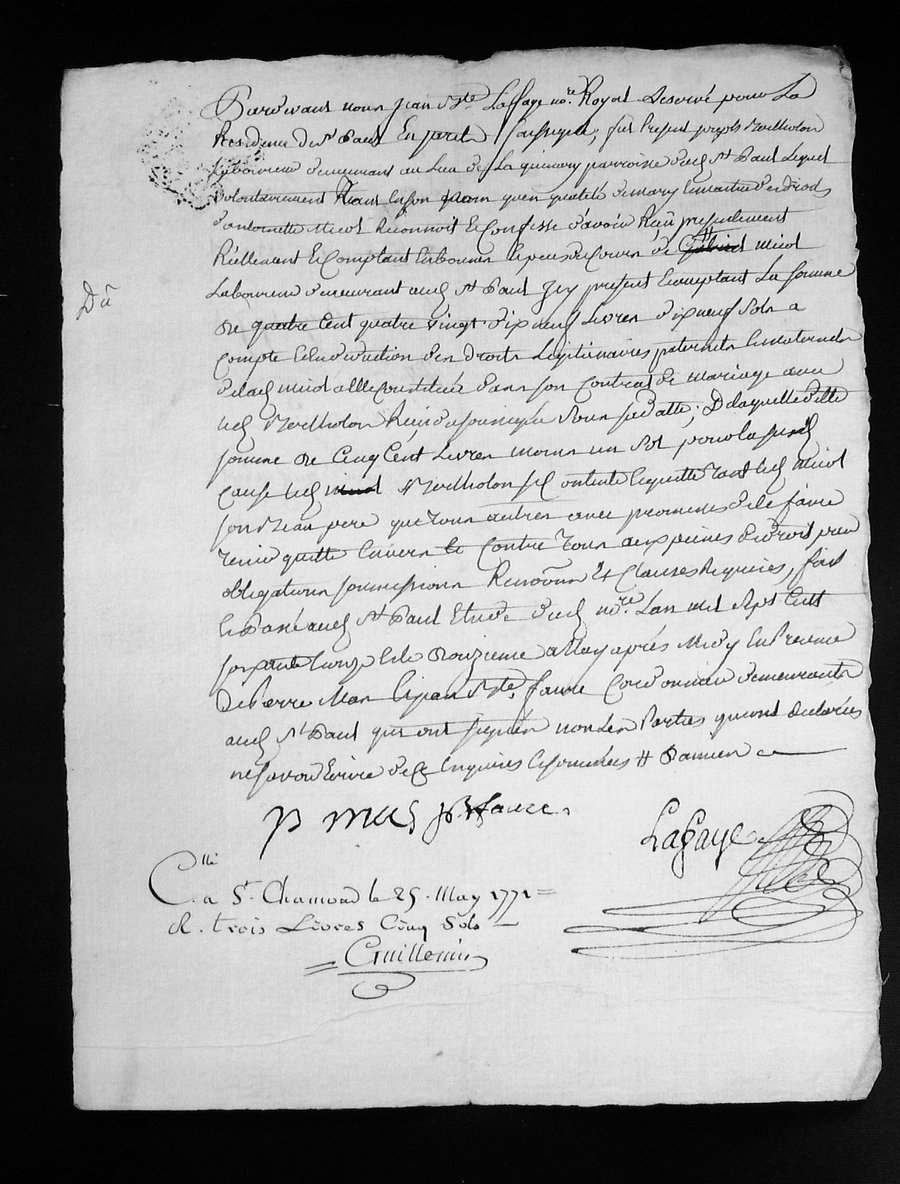 Pardevant nous Jean Bte Laffaye nore Royal Reservé pour La
Residence de St Paul En Jarest Soussigné, fut Present Joseph Bertholon
Laboureur demeurant au Lieu de La paroisse dud St Paul Lequel
volontairement tant En son nom qu'en qualité de mary Et maitre des droits
d'antoinette Micol Reconnoit Et Confesse d'avoir Reçu presentement
Réellement Et Comptant En bonnes Espèces de Cours de Micol
Laboureur demeurant aud St Paul Icy present Et acceptant La somme
de quatre Cent quatre vingt dix neuf Livres dix neuf Sols a
Compte Et En deduction des droits Legitimaires paternels Et maternels
de lad Micol a Elle Constitués dans son Contrat de Mariage avec
led Bertholon Reçu du soussigné Sous sa datte; De laquelle ditte
somme de Cinq Cent Livres moins un Sol pour la susd
Cause led Bertholon se Contente Et quitte tant led Micol
son Beau pere que tous autres avec promesse de le faire
tenir quitte Envers Et Contre tous aux peines de droit par
obligations soumissions Renons Et Clauses Requises, fait
Et Passé aud St Paul Etude dud nore Lan mil Sept Cent
soixante Et onze Et le Douzieme May après Midy En Presence
De Pierre Mas Et Jean Bte faure Cordonnier demeurants
aud St Paul qui ont signés non Les Parties qui ont declarées
ne savoir Ecrire de Ce Enquises Et sommées
Du
p mas jB faure
Lafaye
Clle a St Chamond le 25 May 1771
R. trois Livres Cinq Sols
Guillemin